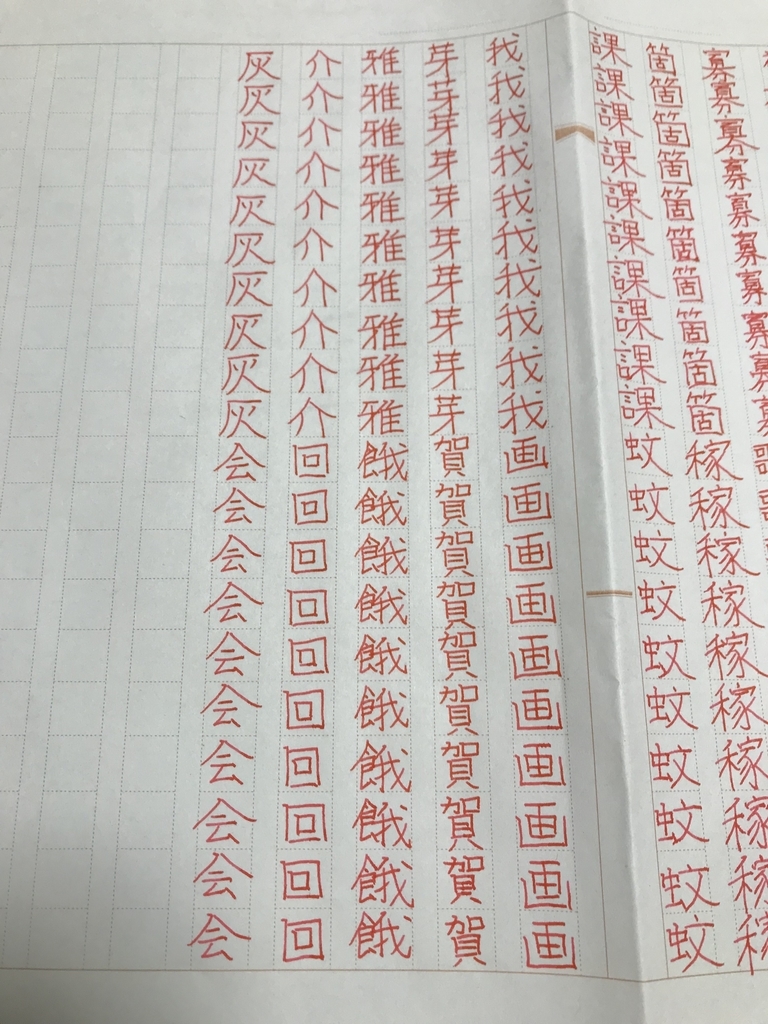 寡寡寡寡寡寡寡寡寡寡
箇箇箇箇箇箇箇箇箇箇稼稼稼稼稼稼稼稼稼稼
課課課課課課課課課課蚊蚊蚊蚊蚊蚊蚊蚊蚊蚊
我我我我我我我我我我画画画画画画画画画画
芽芽芽芽芽芽芽芽芽芽賀賀賀賀賀賀賀賀賀賀
雅雅雅雅雅雅雅雅雅雅餓餓餓餓餓餓餓餓餓餓
介介介介介介介介介介回回回回回回回回回回
灰灰灰灰灰灰灰灰灰灰会会会会会会会会会会